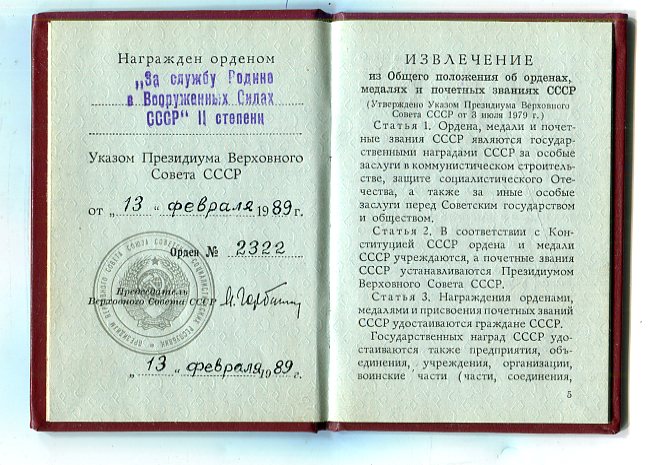 Награжден орденом
„За службу Родине
в Вооруженных Силах
СССР" II степени
Указом Президиума Верховного
Совета СССР
от „13" февраля 1989 г.
Орден № 2322
Председатель
Верховного Совета СССР М. Горбачев
„13" февраля 1989 г.
ПРЕЗИДИУМ ВЕРХОВНОГО СОВЕТА СОЮЗА СОВЕТСКИХ СОЦИАЛИСТИЧЕСКИХ РЕСПУБЛИК
ИЗВЛЕЧЕНИЕ
из Общего положения об орденах,
медалях и почетных званиях СССР
(Утверждено Указом Президиума Верховного
Совета СССР от 3 июля 1979 г.)
Статья 1. Ордена, медали и почет-
ные звания СССР являются государ-
ственными наградами СССР за особые
заслуги в коммунистическом строитель-
стве, защите социалистического Оте-
чества, а также за иные особые
заслуги перед Советским государством
и обществом.
Статья 2. В соответствии с Кон-
ституцией СССР ордена и медали
СССР учреждаются, а почетные звания
СССР устанавливаются Президиумом
Верховного Совета СССР.
Статья 3. Награждения орденами,
медалями и присвоения почетных званий
СССР удостаиваются граждане СССР.
Государственных наград СССР удо-
стаиваются также предприятия, объ-
единения, учреждения, организации,
воинские части (части, соединения,
5